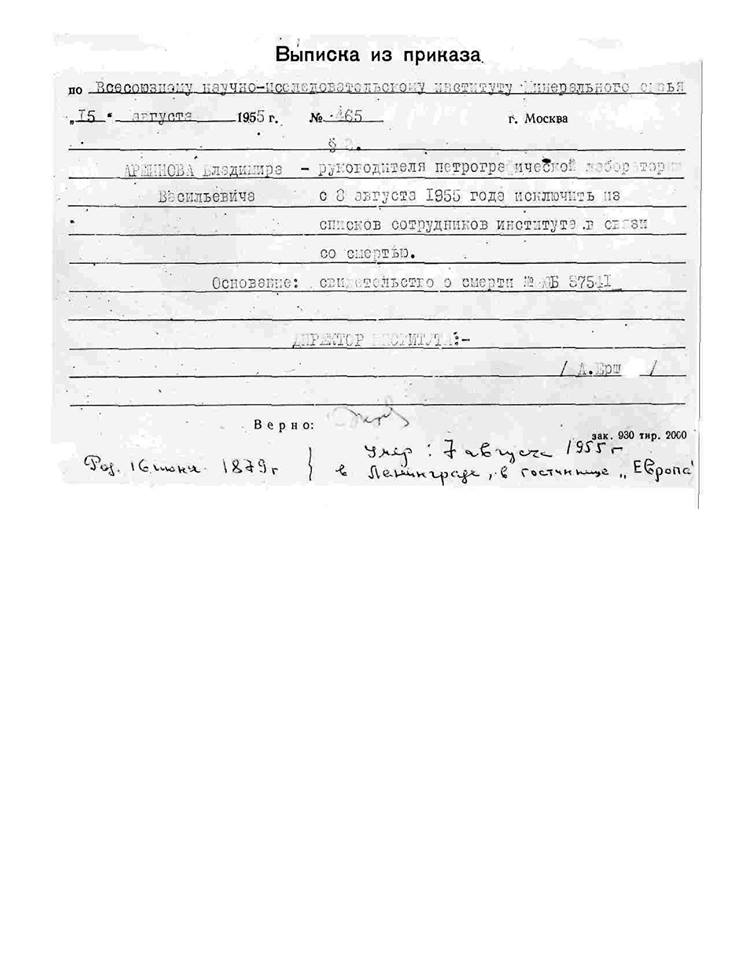 Выписка из приказа
по Всесоюзному научно-исследовательскому институту Минерального сырья
„15" августа 1955 г. № 465 г. Москва
§
АРШИНОВА Владимира – руководителя петрографической лаборатории
Васильевича с 8 августа 1955 года исключить из
списков сотрудников института в связи
со смертью.
Основание: свидетельство о смерти № 37541
ДИРЕКТОР ИНСТИТУТА:-
/ А.Ерш /
Верно:
зак. 930 тир. 2000
Род. 16 июня 1879 г } Умер: 7 августа 1955 г
в Ленинграде, в гостинице „Европа"